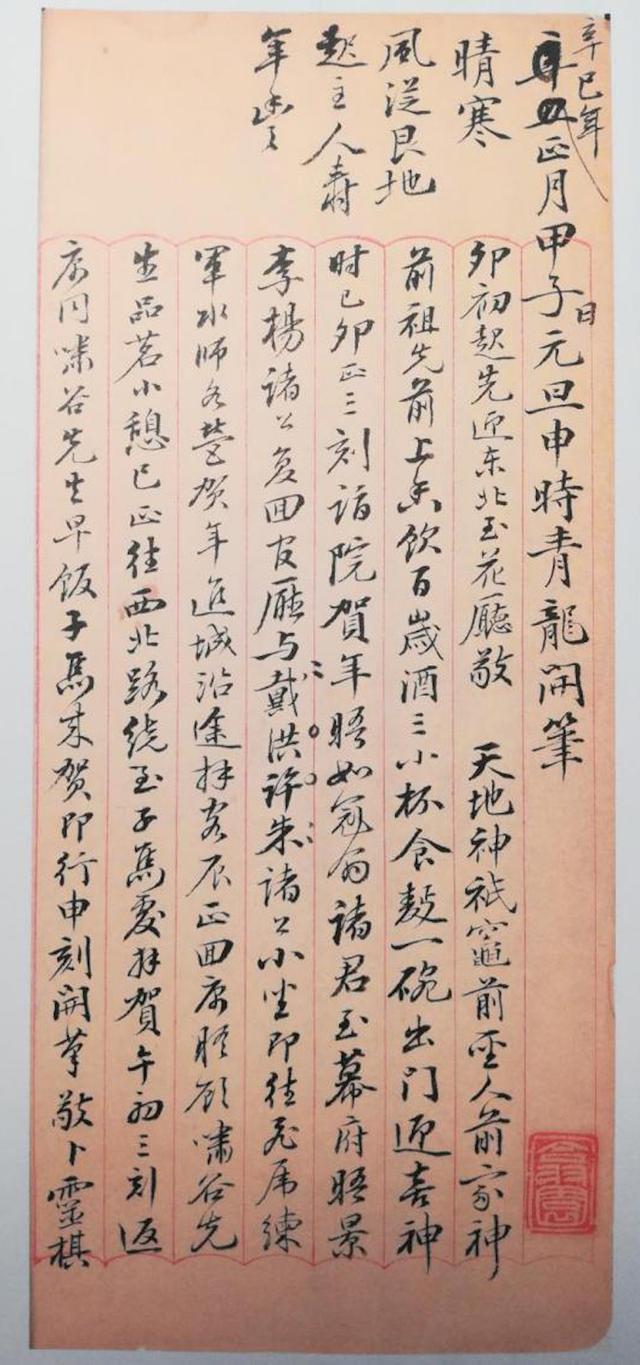 辛巳年
正月甲子日元旦申時青龍開筆
晴寒
風從艮地
起主人壽
年豐
卯初起先迎东北至花廳敬 天地神祇竈前聖人前家神
前祖先前上香飲百歲酒三小杯食麪一碗出門迎喜神
时已卯正三刻詣院賀年晤如冠翁諸君至幕府晤景
李楊諸公复回官廳与戴洪許朱諸公小坐即往飛虎練
軍水師各營贺年進城沿途拜客辰正回寓晤顧嘯谷先
生品茗小憩巳正往西北路绕至子雋處拜賀午初三刻返
寓同啸谷先生早饭子雋来贺即行申刻開筆敬卜靈棋